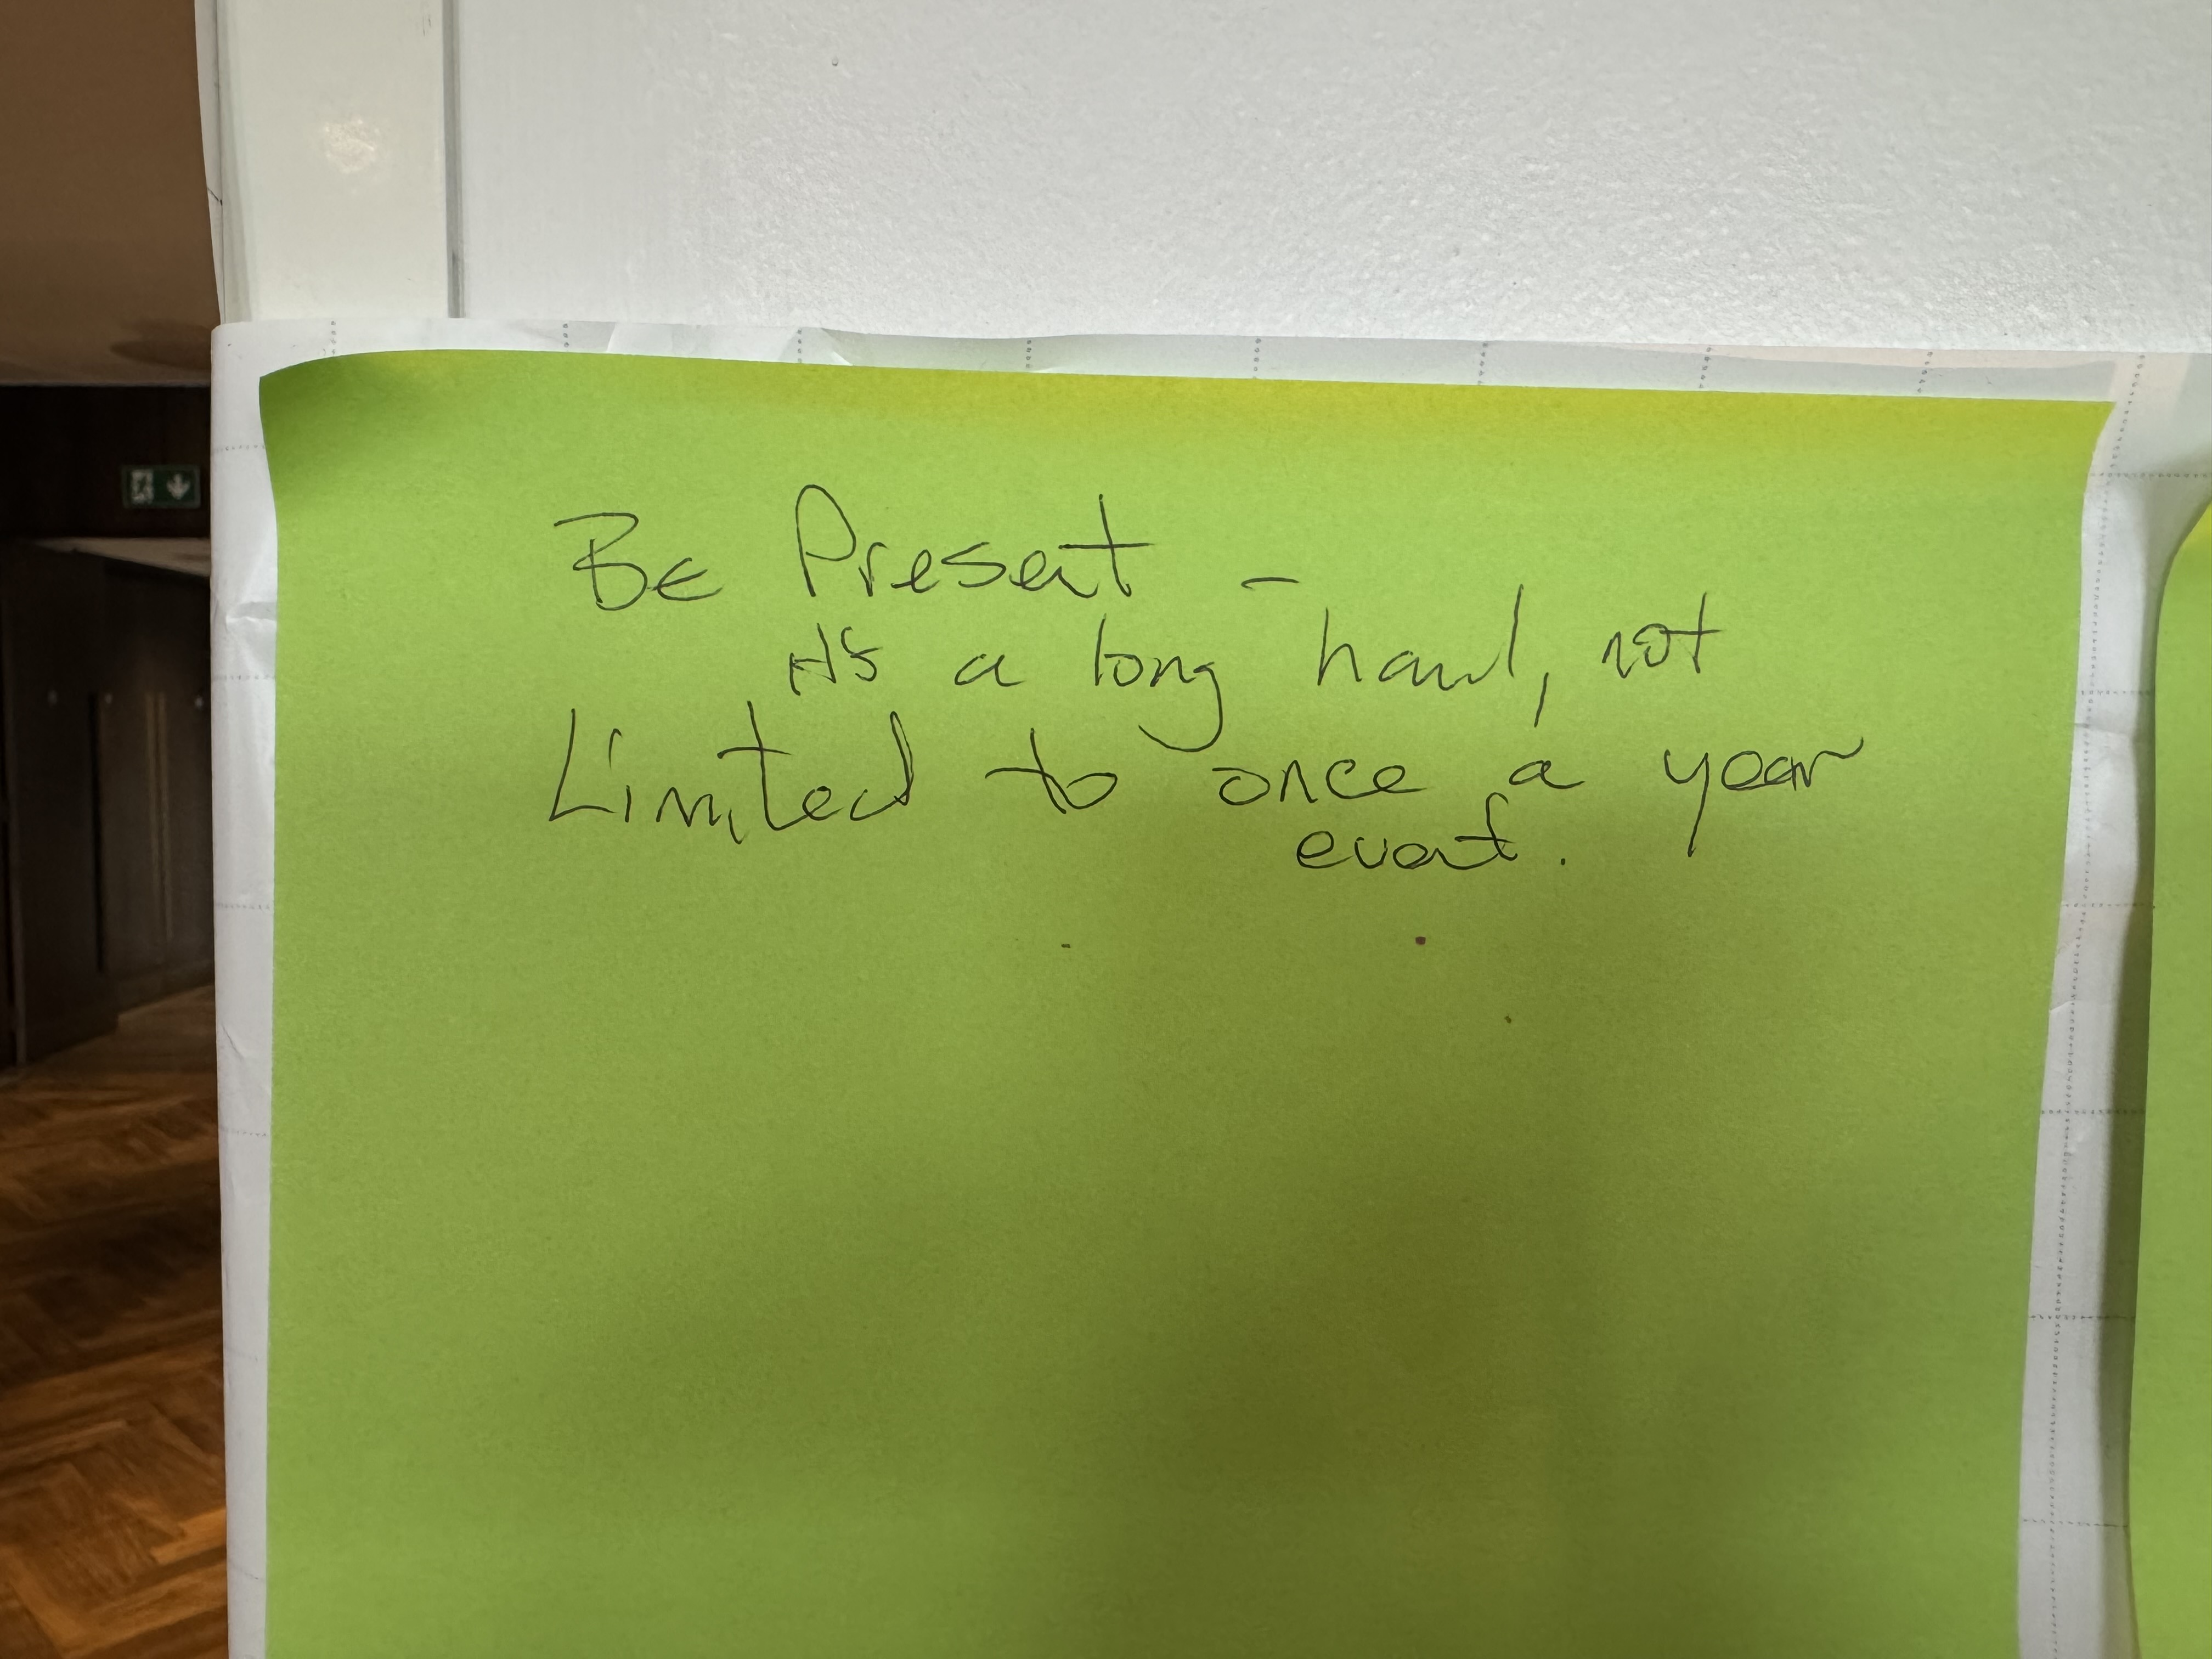 Be Present -
it's a long haul, not
Limited to once a year
event.